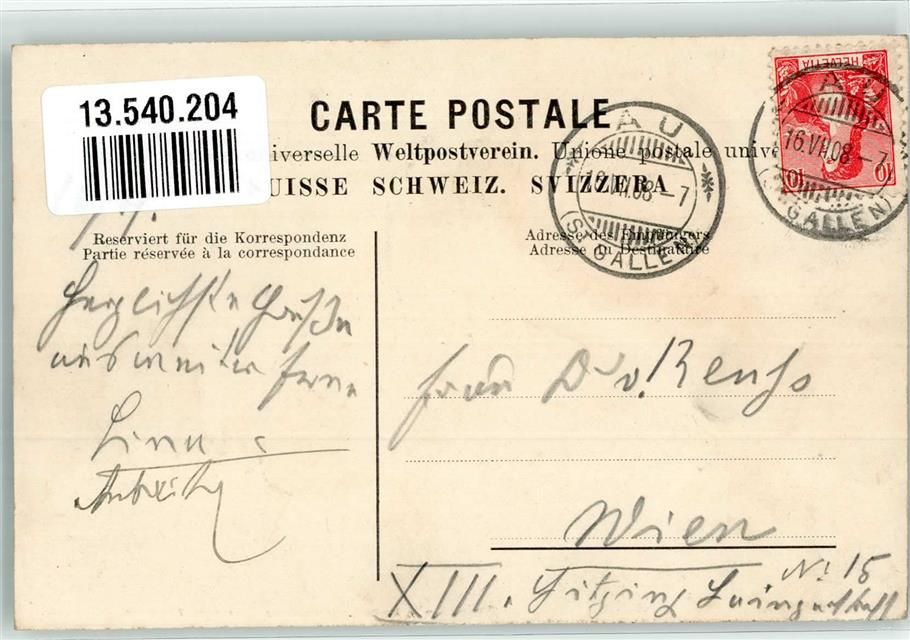 13.540.204
CARTE POSTALE
niverselle Weltpostverein. Unione postale unive
UISSE SCHWEIZ. SVIZZERA
Reserviert für die Korrespondenz
Partie réservée à la correspondance
Adresse des Empfängers
Adresse du Destinataire
HELVETIA
10
10
AU
16.VI.08-7
(ST. GALLEN)
AU
16.VI.08-7
GALLEN)
Herzlichste Grüße
aus weiter Ferne
Frau Dr v.
Wien
XIII. Hitzing
No 15